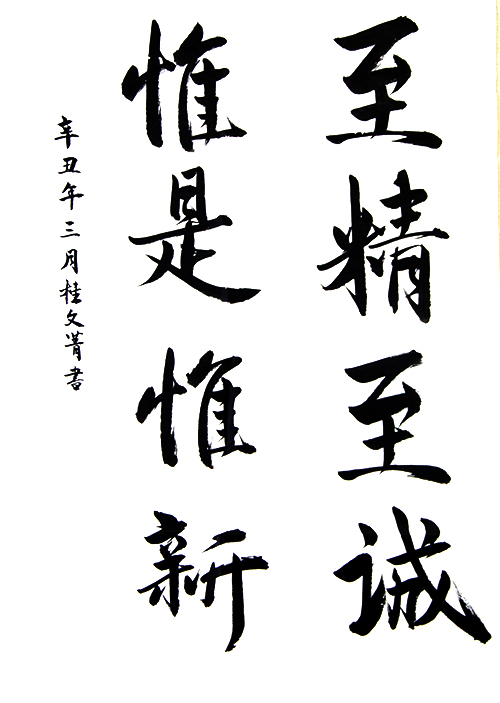 至精至诚
惟是惟新
辛丑年三月桂文菁书